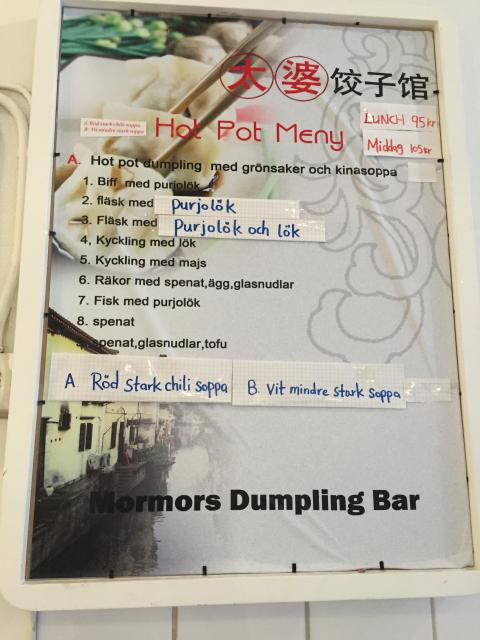 太婆饺子馆
LUNCH 95kr
A: Röd stark chili soppa
B: Vit mindre stark soppa
Hot Pot Meny
Middag 105kr
A. Hot pot dumpling med grönsaker och kinasoppa
1. Biff med purjolök
2. fläsk med purjolök
3. Fläsk med Purjolök och lök
4, Kyckling med lök
5. Kyckling med majs
6. Räkor med spenat,ägg,glasnudlar
7. Fisk med purjolök
8. spenat
spenat,glasnudlar,tofu
A. Röd Stark chili soppa B. Vit mindre stark Soppa
Mormors Dumpling Bar